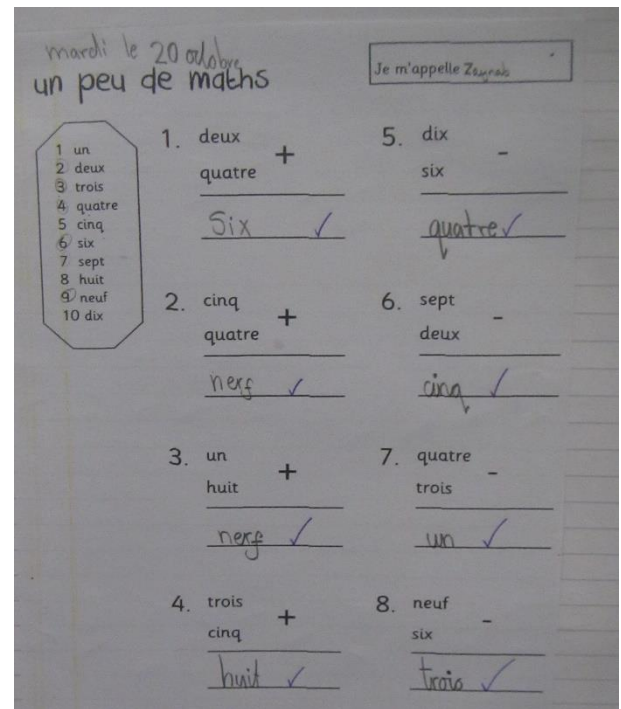 mardi le 20 octobre
un peu de maths
Je m'appelle Zaynab
1 un
2 deux
3 trois
4 quatre
5 cinq
6 six
7 sept
8 huit
9 neuf
10 dix
1. deux
quatre +
six ✓
2. cinq
quatre +
nerf ✓
3. un
huit +
nerf ✓
4. trois
cinq +
huit ✓
5. dix
six -
quatre ✓
6. sept
deux -
cinq ✓
7. quatre
trois -
un ✓
8. neuf
six -
trois ✓